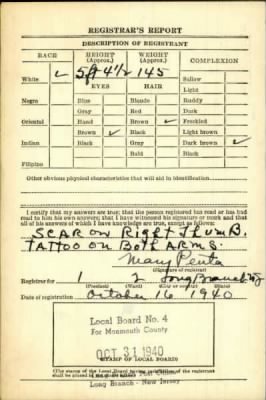 REGISTRAR'S REPORT
DESCRIPTION OF REGISTRANT
RACE HEIGHT (Approx.) WEIGHT (Approx.) COMPLEXION
White ✓ 5 ft 4½ 145 Sallow
Light
EYES HAIR
Negro Blue Blonde Ruddy
Gray Red Dark
Oriental Hazel Brown ✓ Freckled
Brown ✓ Black Light brown
Indian Black Gray Dark brown ✓
Bald Black
Filipino
Other obvious physical characteristics that will aid in identification
I certify that my answers are true; that the person registered has read or has had
read to him his own answers; that I have witnessed his signature or mark and that
all of his answers of which I have knowledge are true, except as follows:
SCAR ON Right Thumb.
TATTOO ON Both ARMS.
Mary Penta
(Signature of registrar)
Registrar for 1 2 Long Branch
(Precinct) (Ward) (City or county)
Date of registration October 16 1940
Local Board No. 4
For Monmouth County
OCT 31 1940
(STAMP OF LOCAL BOARD)
(The stamp of the Local Board having jurisdiction of the registrant
shall be placed in the
Long Branch - New Jersey